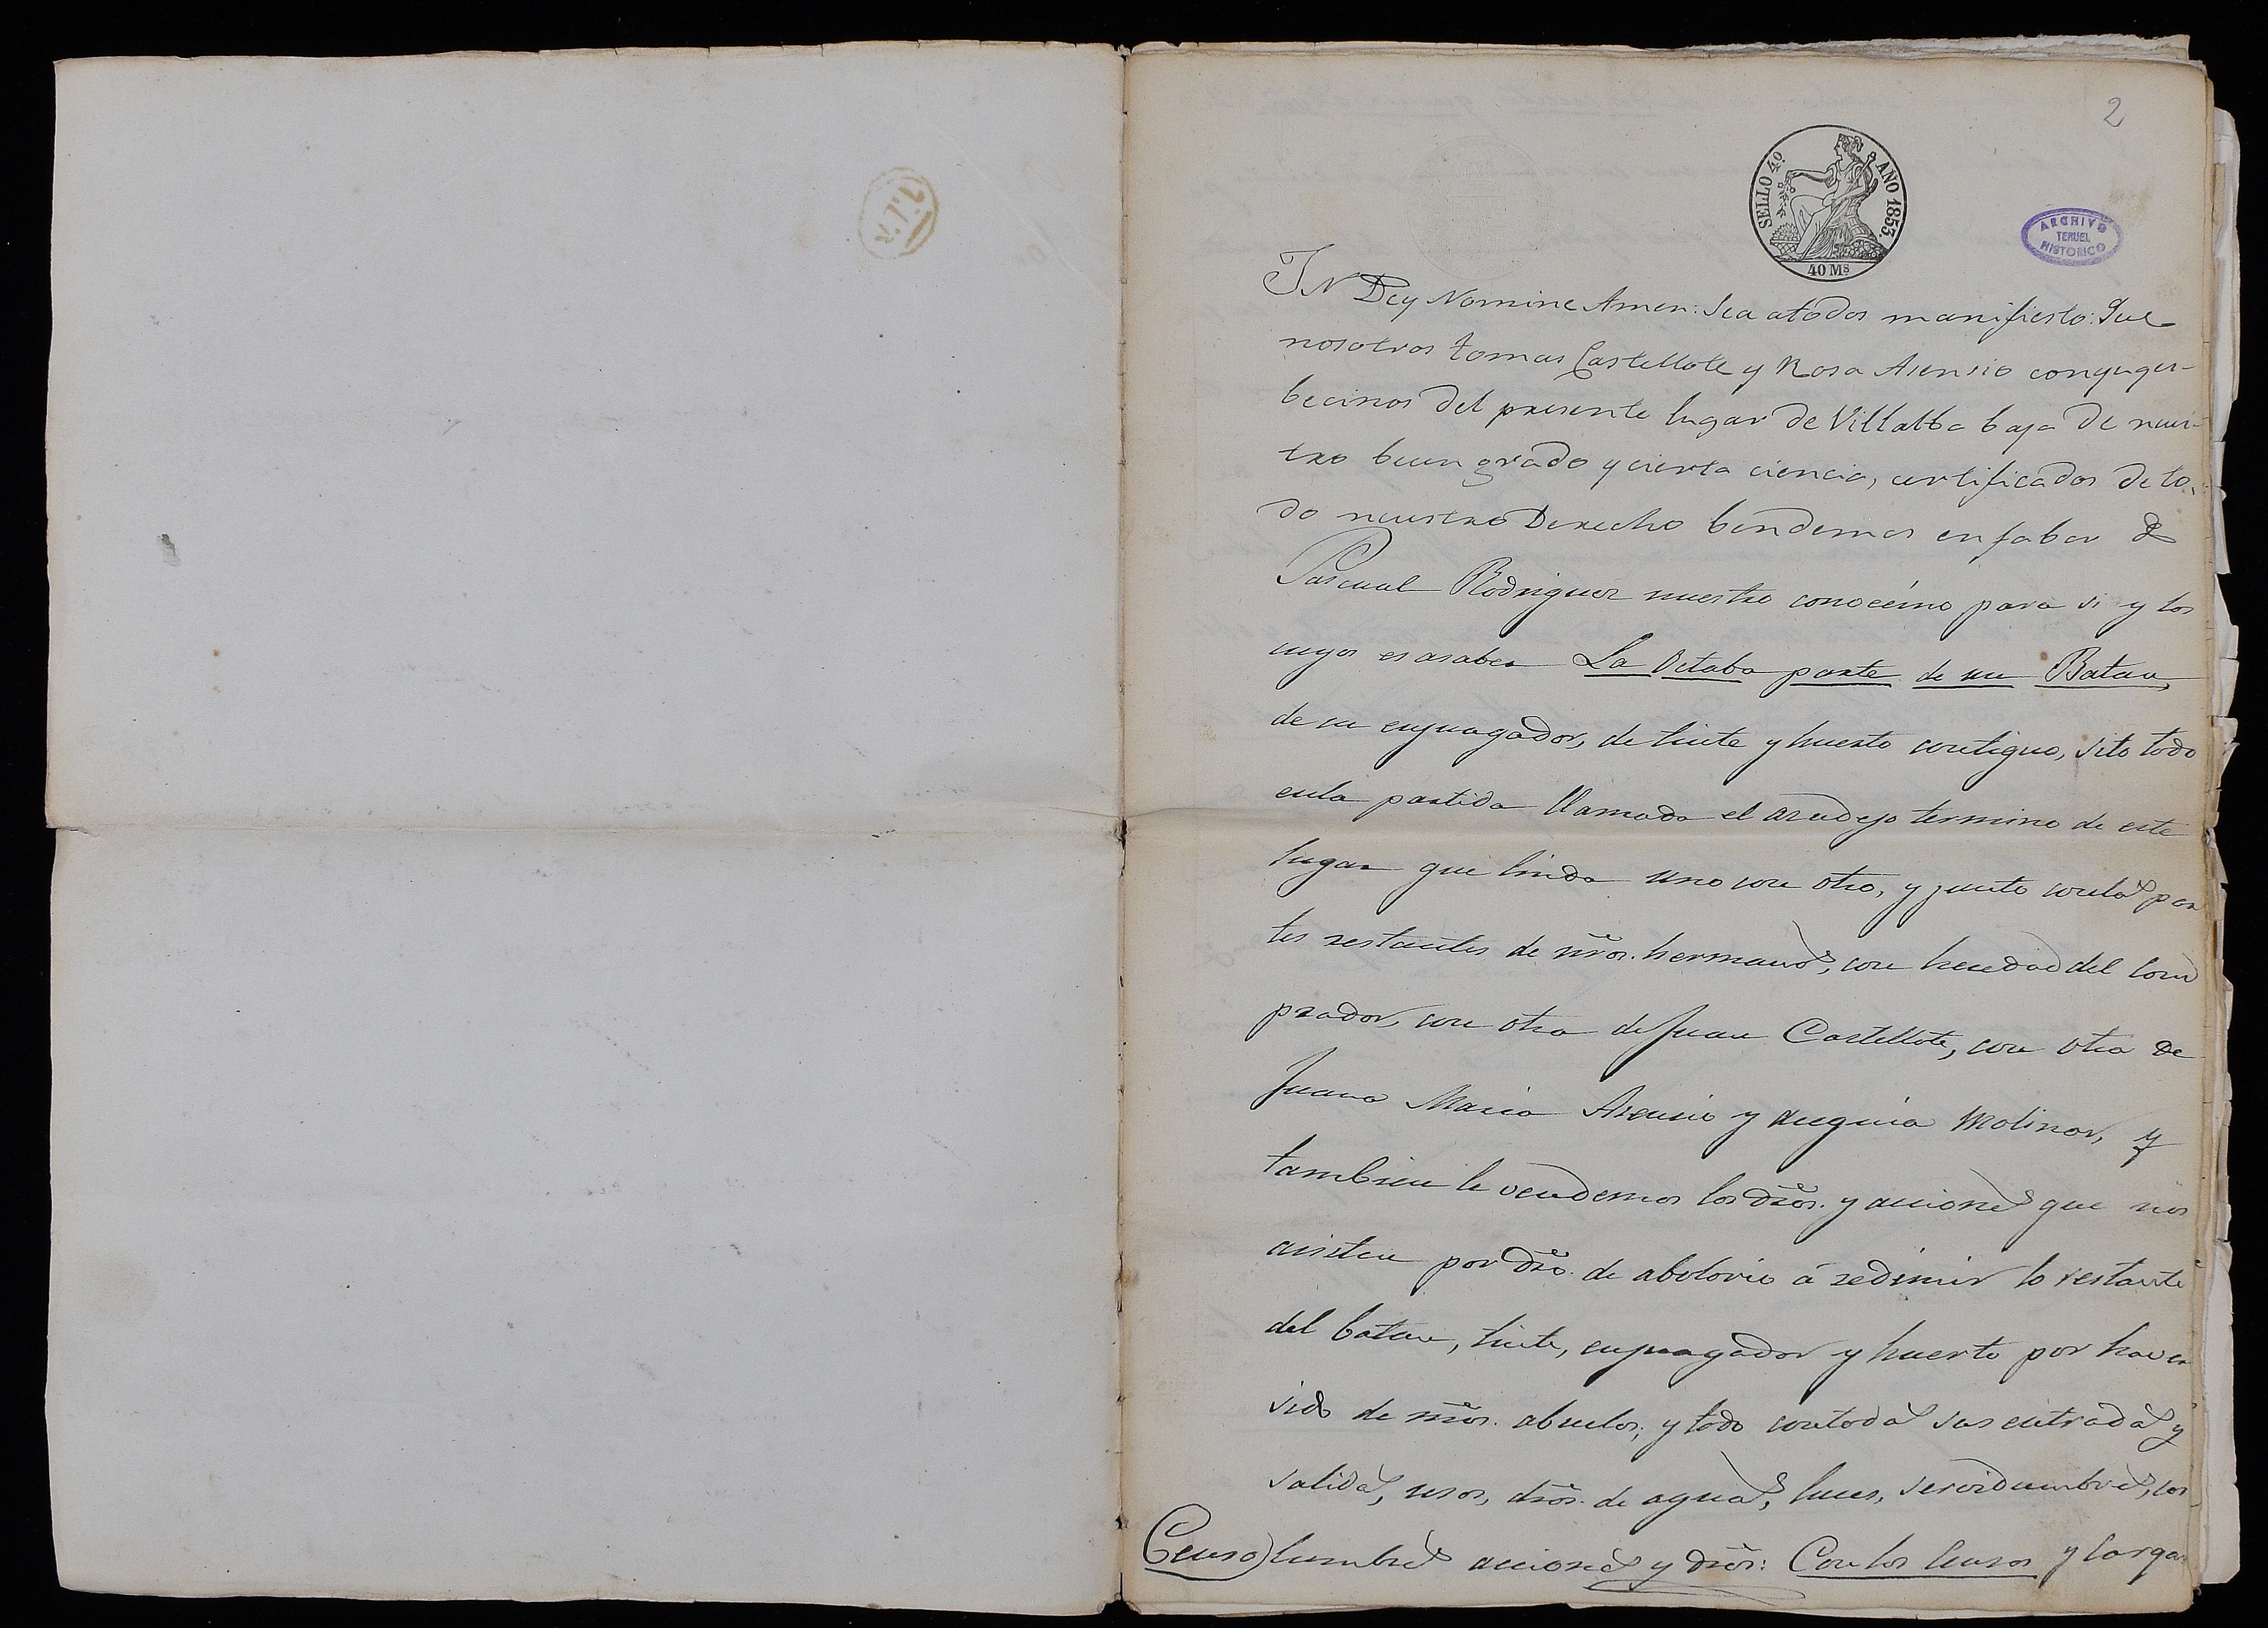 2
SELLO 4º AÑO 1853.
40 Ms
ARCHIVO
TERUEL
HISTORICO
IN Dey Nomine Amen: Sea atodos manifiesto: Que
nosotros tomas Castellote y Rosa Asensio conyuges
becinos del presente lugar de Villalba baja de nues-
tro buen grado y cierta ciencia, certificados de to-
do nuestro Derecho bendemos en fabor de
Pascual Rodriguez nuestro conocémo para si y los
suyos es asaber La Octaba parte de un Batan,
de su enjuagador, de tinte y huerto contiguo, sito todo
enla partida llamada el azudejo termino de este
lugar que linda uno con otro, y junto conlas par
tes restantes de nr̃os. hermanos, con heredad del com
prador, con otra de Juan Castellote, con otra de
Juana Maria Asensio y acequia Molinar, y
tambien le vendemos los dr̃os. y acciones que nos
asisten por dr̃o. de abolorio á redimir lo restante
del batan, tinte, enjuagador y huerto por haver
sido de nr̃os. abuelos; y todo contodas sus entradas y
salidas, usos, dr̃os. de aguas, luces, servidumbres, cos-
Censo) tumbres acciones y dr̃os: Con los censos y cargas